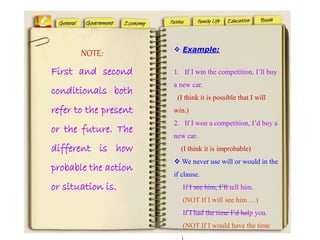 General Government Economy Politics Family Life Education Youth
NOTE:
First and second
conditionals both
refer to the present
or the future. The
different is how
probable the action
or situation is.
❖ Example:
1. If I win the competition, I'll buy
a new car.
(I think it is possible that I will
win.)
2. If I won a competition, I'd buy a
new car.
(I think it is improbable)
❖ We never use will or would in the
if clause.
If I see him, I'll tell him.
(NOT If I will see him …)
If I had the time I'd help you.
(NOT If I would have the time
)